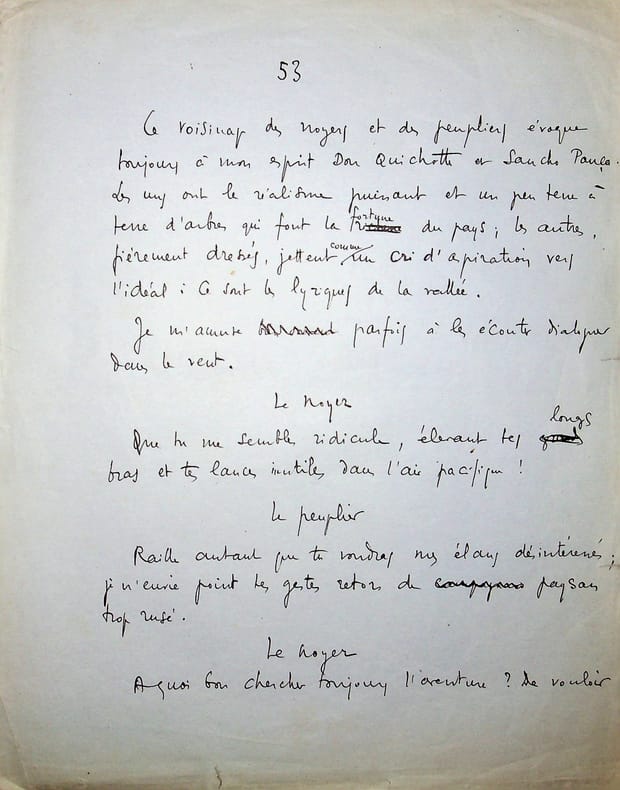 53
Ce voisinage des noyers et des peupliers évoque
toujours à mon esprit Don Quichotte et Sancho Pança.
Les uns ont le réalisme puissant et un peu terre à
terre d'arbres qui font la fortune du pays ; les autres,
fièrement dressés, jettent comme un cri d'aspiration vers
l'idéal : Ce sont les lyriques de la vallée.
Je m'amuse parfois à les écouter dialoguer
dans le vent.
Le Noyer
Que tu me sembles ridicule, élevant tes longs
bras et tes lances inutiles dans l'air pacifique !
Le peuplier
Raille autant que tu voudras mes élans désintéressés ;
je n'envie point tes gestes retors de paysan
trop rusé.
Le noyer
A quoi bon chercher toujours l'aventure ? De vouloir